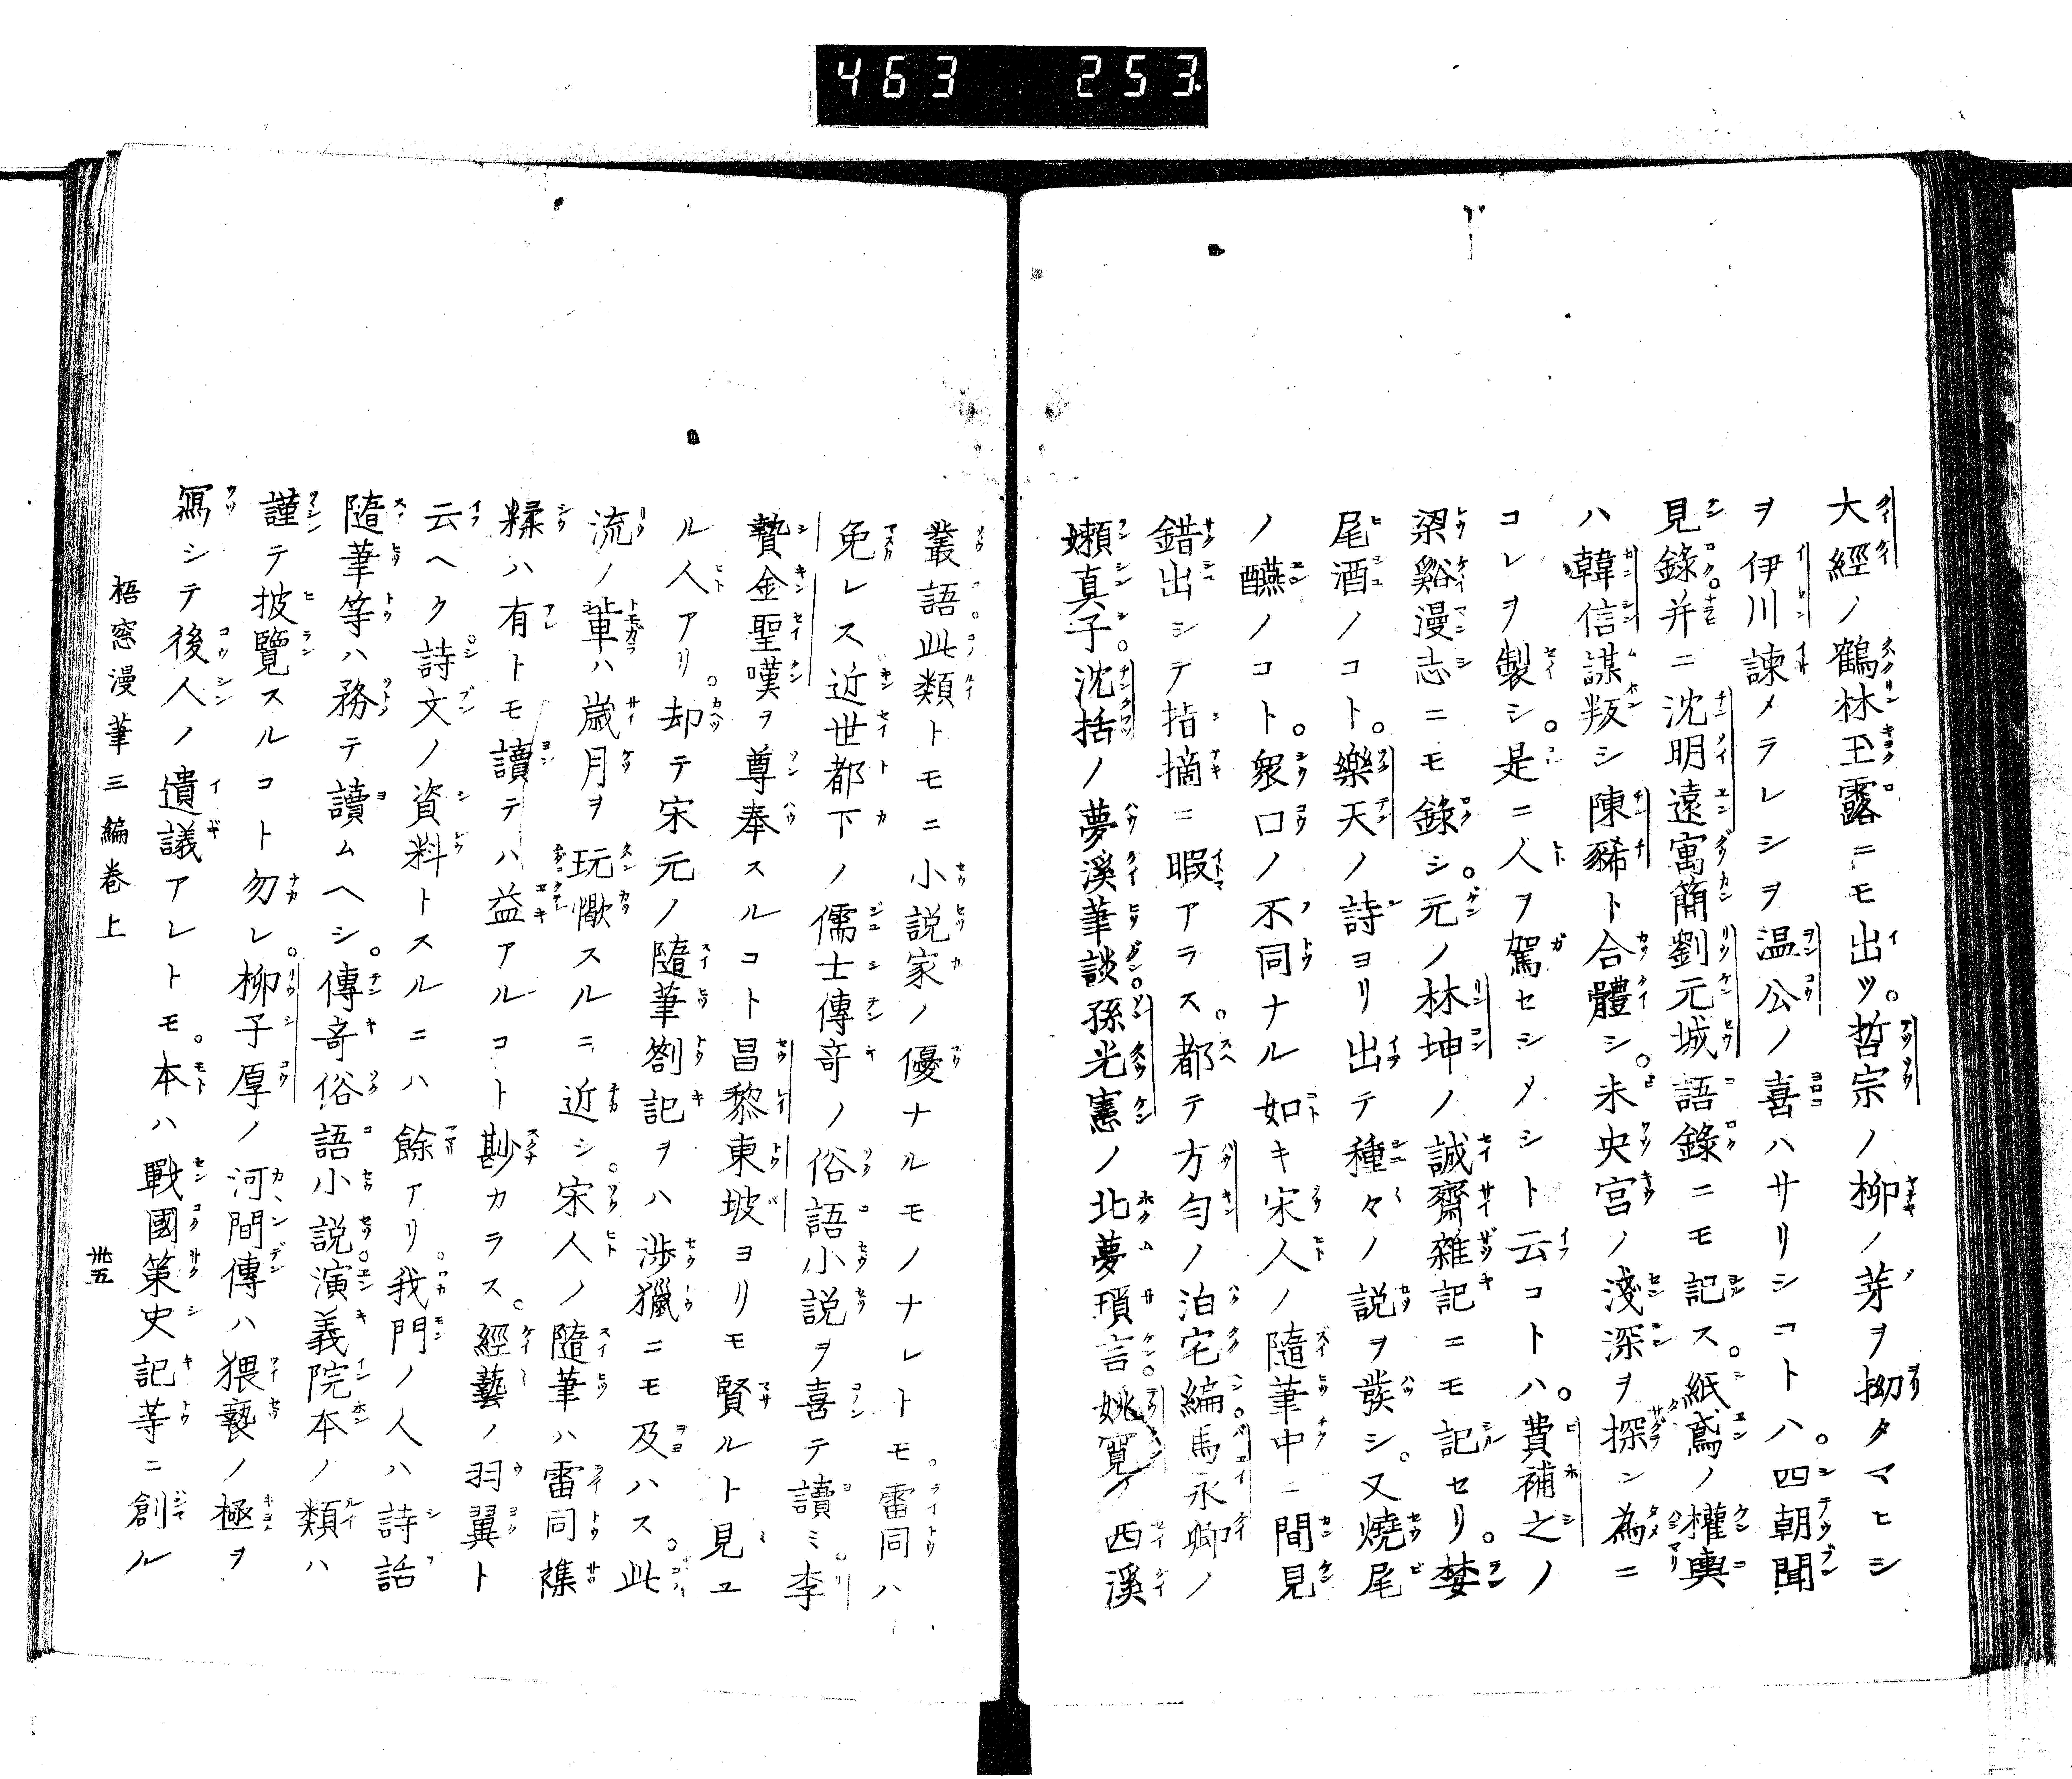 463 253
大經ノ鶴林玉露ニモ出ツ。哲宗ノ柳ノ芽ヲ拗タマヒシ
ヲ伊川諫メラレシヲ温公ノ喜ハサリシコトハ。四朝聞
見錄并ニ沈明遠寓簡劉元城語錄ニモ記ス。紙鳶ノ權輿
ハ韓信謀叛シ陳豨ト合體シ。未央宮ノ淺深ヲ探ン為ニ
コレヲ製シ。是ニ人ヲ駕セシメシト云コトハ。費補之ノ
梁谿漫志ニモ錄シ。元ノ林坤ノ誠齋雜記ニモ記セリ。婪
尾酒ノコト。樂天ノ詩ヨリ出テ種々ノ説ヲ發シ。又燒尾
ノ醼ノコト。衆口ノ不同ナル如キ宋人ノ隨筆中ニ間見
錯出シテ指摘ニ暇アラス。都テ方勻ノ泊宅編。馬永卿ノ
嬾真子。沈括ノ夢溪筆談。孫光憲ノ北夢瑣言。姚寬ノ西溪
叢語。此類トモニ小説家ノ優ナルモノナレトモ。雷同ハ
免レス。近世都下ノ儒士傳奇ノ俗語小説ヲ喜テ讀ミ。李
贄金聖嘆ヲ尊奉スルコト昌黎東坡ヨリモ賢ルト見ユ
ル人アリ。却テ宋元ノ隨筆劄記ヲハ涉獵ニモ及ハス。此
流ノ輩ハ歲月ヲ玩愒スルニ近シ。宋人ノ隨筆ハ雷同襍
糅ハ有トモ讀テハ益アルコト尠カラス。經藝ノ羽翼ト
云ヘク詩文ノ資料トスルニハ餘アリ。我門ノ人ハ詩話
隨筆等ハ務テ讀ムヘシ。傳奇俗語小説演義院本ノ類ハ
謹テ披覽スルコト勿レ。柳子厚ノ河間傳ハ猥褻ノ極ヲ
寫シテ後人ノ遺議アレトモ。本ハ戰國策史記等ニ創ル
梧窓漫筆三編卷上
卅五